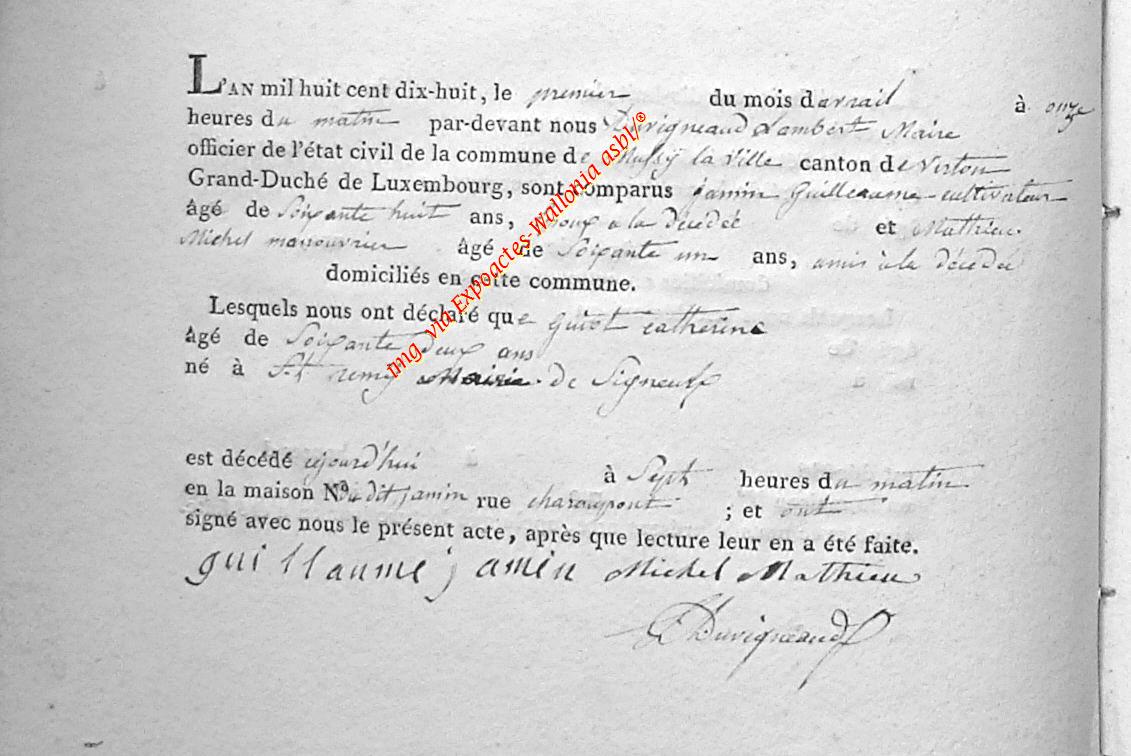 L'AN mil huit cent dix-huit, le premier du mois d'avrail à onze
heures du matin par-devant nous Duvigneaud Lambert Maire
officier de l'état civil de la commune de Mussÿ la ville canton de Virton
Grand-Duché de Luxembourg, sont comparus jamin Guilleaume cultivateur
âgé de Soixante huit ans, Epoux a la décédée et Mathieu
Michel manouvrier âgé de Soixante un ans, amis à la décédée
domiciliés en cette commune.
Lesquels nous ont déclaré que guiot catherine
âgé de Soixante deux ans
né à St remy Mairie de Signeulx
est décédé cejourd'hui à Sept heures du matin
en la maison No du dit jamin rue ; et ont
signé avec nous le présent acte, après que lecture leur en a été faite.
guillaume jamin Michel Mathieu
Duvigneaud
img via Expoactes-Wallonia asbl/®